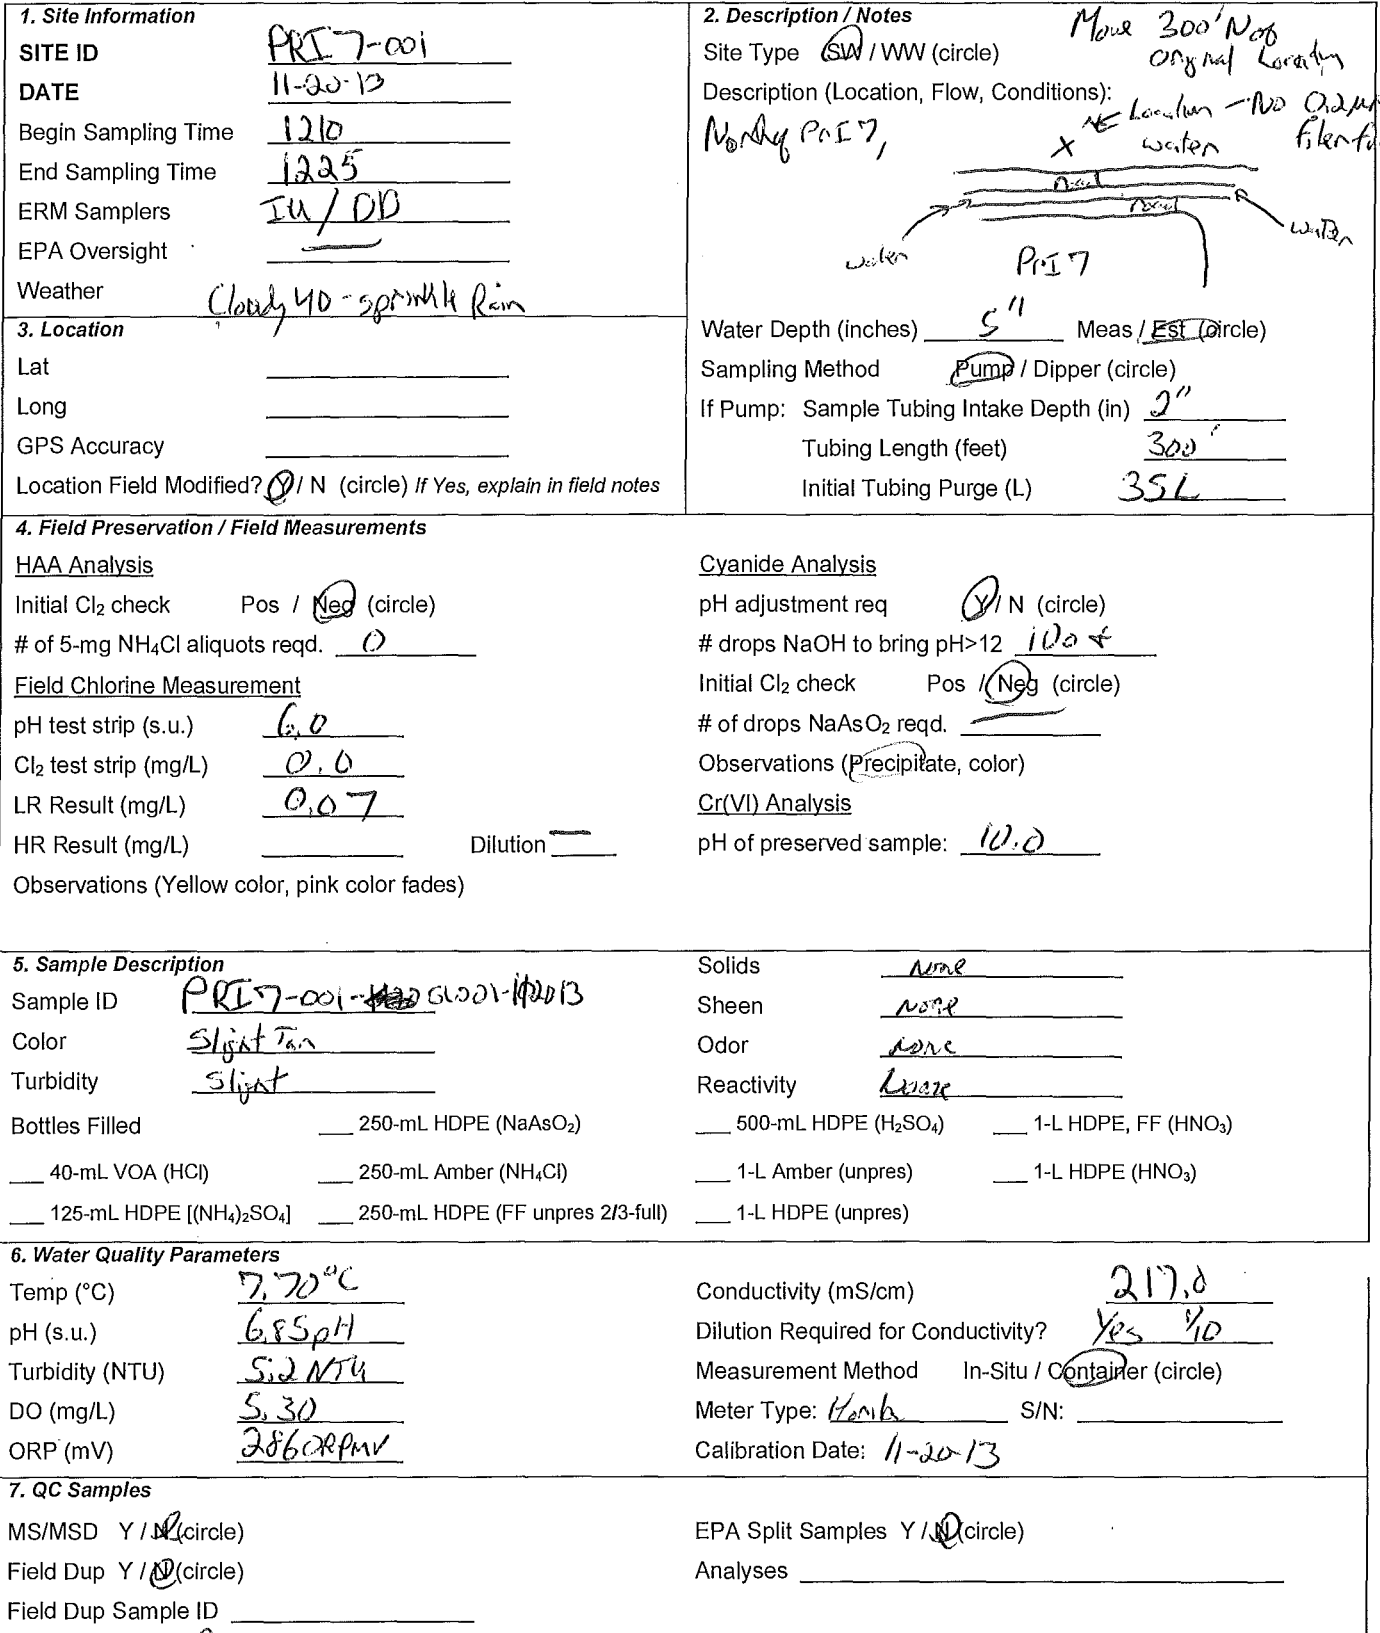 1. Site Information
SITE ID PRI7-001
DATE 11-20-13
Begin Sampling Time 1210
End Sampling Time 1225
ERM Samplers IU / DD
EPA Oversight —
Weather Cloudy 40 - sprinkle Rain
2. Description / Notes
Move 300' N of
Original Location
Site Type SW / WW (circle)
Description (Location, Flow, Conditions):
NE Location - No 0.2
North of PRI7,
X water
road
road
water
water
PRI7
Water Depth (inches) 5" Meas / Est (circle)
Sampling Method Pump / Dipper (circle)
If Pump: Sample Tubing Intake Depth (in) 2"
Tubing Length (feet) 300'
Initial Tubing Purge (L) 35L
3. Location
Lat
Long
GPS Accuracy
Location Field Modified? Y / N (circle) If Yes, explain in field notes
4. Field Preservation / Field Measurements
HAA Analysis
Initial Cl₂ check Pos / Neg (circle)
# of 5-mg NH₄Cl aliquots reqd. 0
Field Chlorine Measurement
pH test strip (s.u.) 6.0
Cl₂ test strip (mg/L) 0.0
LR Result (mg/L) 0.07
HR Result (mg/L) Dilution —
Observations (Yellow color, pink color fades)
Cyanide Analysis
pH adjustment req Y / N (circle)
# drops NaOH to bring pH>12 100+
Initial Cl₂ check Pos / Neg (circle)
# of drops NaAsO₂ reqd. —
Observations (Precipitate, color)
Cr(VI) Analysis
pH of preserved sample: 10.0
5. Sample Description
Sample ID PRI7-001- 112013
Color Slight Tan
Turbidity Slight
Solids None
Sheen None
Odor None
Reactivity None
Bottles Filled ___ 250-mL HDPE (NaAsO₂) ___ 500-mL HDPE (H₂SO₄) ___ 1-L HDPE, FF (HNO₃)
___ 40-mL VOA (HCl) ___ 250-mL Amber (NH₄Cl) ___ 1-L Amber (unpres) ___ 1-L HDPE (HNO₃)
___ 125-mL HDPE [(NH₄)₂SO₄] ___ 250-mL HDPE (FF unpres 2/3-full) ___ 1-L HDPE (unpres)
6. Water Quality Parameters
Temp (°C) 7.70°C
pH (s.u.) 6.85pH
Turbidity (NTU) 5.2 NTU
DO (mg/L) 5.30
ORP (mV) 286 ORPMV
Conductivity (mS/cm) 217.0
Dilution Required for Conductivity? Yes 1/10
Measurement Method In-Situ / Container (circle)
Meter Type: Horiba S/N:
Calibration Date: 11-20-13
7. QC Samples
MS/MSD Y / N (circle)
Field Dup Y / N (circle)
Field Dup Sample ID
EPA Split Samples Y / N (circle)
Analyses